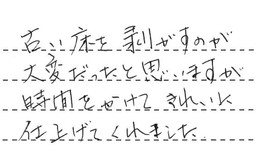 古い床を剥がすのが
大変だったと思いますが
時間をかけてきれいに
仕上げてくれました